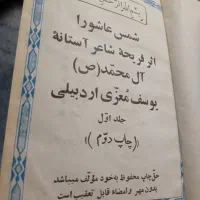 شمس عاشورا
اثر قریحهٔ شاعر آستانهٔ
آل محمّد(ص)
یوسف معزّی اردبیلی
جلد اوّل
«(چاپ دوّم)»
حق چاپ محفوظ به خود مؤلف میباشد
بدون مهر و امضاء قابل تعقیب است